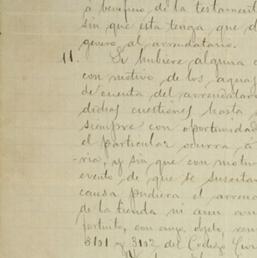 a beneficio de la testament
sin que esta tenga que d
genero al arrendatario.
11. Si hubiere alguna c
con motivo de las aguas
de cuenta del arrendatar
dichas cuestiones hasta
siempre con oportunidad
el particular ocurra á
ria, y sin que con motiv
evento de que se suscitar
causa pudiera el arren
de la tienda ni aun
fortuito, con cuyo objeto ren
3101 y 3102 del Codigo Civi